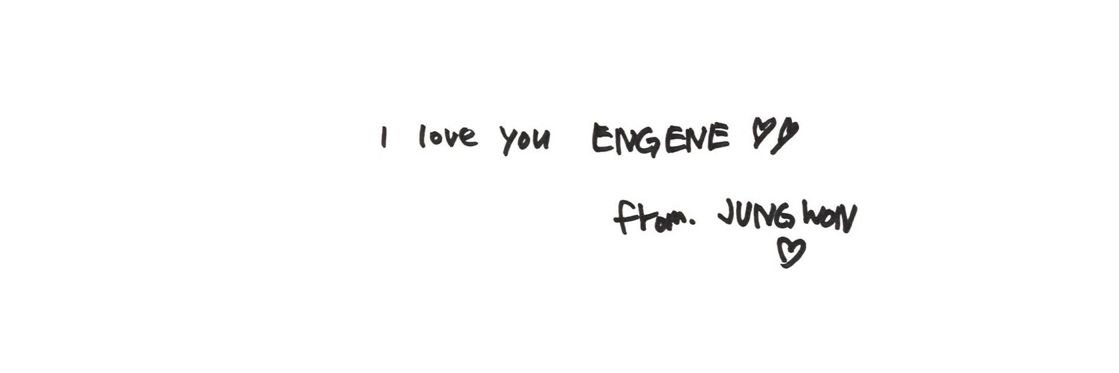 I love you ENGENE ♡♡
from. JUNGWON
♡